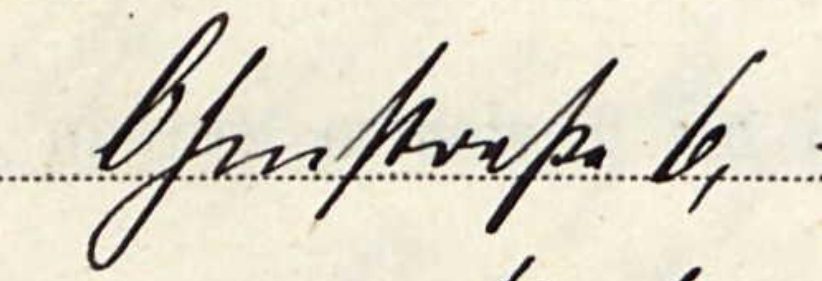 Ohmstraße 6,